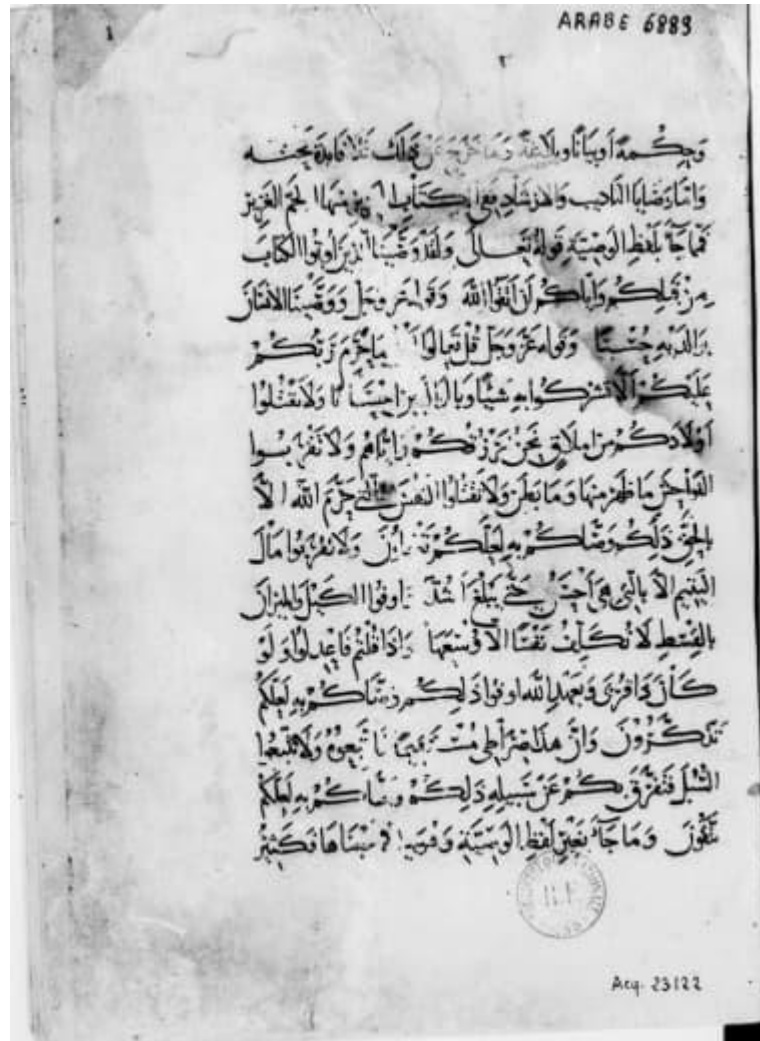 ARABE 6889
وَحِكْمَةً أَوْ بَيَانًا وبلاغة وَمَا خَرَجَ عَنْ ذَلِكَ فَلَا فَائِدَةَ
النَّادِيبِ وَالإرشَادِ
فَمَا جَاءَ بِلَفْظِ الوَصِيَّةِ قَوْلُهُ تَعَالَى وَلَقَدْ وَصَّيْنَا الَّذِينَ أُوتُوا الْكِتَابَ
مِنْ قَبْلِكُمْ وَإِيَّاكُمْ أَنِ اتَّقُوا اللهَ وَقَوْلُهُ عَزَّ وَجَلَّ وَوَصَّيْنَا الإِنْسَانَ
بِوَالِدَيْهِ حُسْنًا وَقَوْلُهُ عَزَّ وَجَلَّ قُلْ تَعَالَوْا مَا حَرَّمَ رَبُّكُمْ
عَلَيْكُمْ أَلَّا تُشْرِكُوا بِهِ شَيْئًا وَبِالْوَالِدَيْنِ إِحْسَانًا وَلَا تَقْتُلُوا
أَوْلَادَكُمْ مِنْ إِمْلَاقٍ نَحْنُ نَرْزُقُكُمْ وَإِيَّاهُمْ وَلَا تَقْرَبُوا
الْفَوَاحِشَ مَا ظَهَرَ مِنْهَا وَمَا بَطَنَ وَلَا تَقْتُلُوا النَّفْسَ الَّتِي حَرَّمَ اللهُ إِلَّا
بِالْحَقِّ ذَلِكُمْ وَصَّاكُمْ بِهِ لَعَلَّكُمْ تَعْقِلُونَ وَلَا تَقْرَبُوا مَالَ
الْيَتِيمِ إِلَّا بِالَّتِي هِيَ أَحْسَنُ حَتَّى يَبْلُغَ أَشُدَّهُ وَأَوْفُوا الْكَيْلَ وَالْمِيزَانَ
بِالْقِسْطِ لَا نُكَلِّفُ نَفْسًا إِلَّا وُسْعَهَا وَإِذَا قُلْتُمْ فَاعْدِلُوا وَلَوْ
كَانَ ذَا قُرْبَى وَبِعَهْدِ اللهِ أَوْفُوا ذَلِكُمْ وَصَّاكُمْ بِهِ لَعَلَّكُمْ
تَذَكَّرُونَ وَأَنَّ هَذَا صِرَاطِي مُسْتَقِيمًا فَاتَّبِعُوهُ وَلَا تَتَّبِعُوا
السُّبُلَ فَتَفَرَّقَ بِكُمْ عَنْ سَبِيلِهِ ذَلِكُمْ وَصَّاكُمْ بِهِ لَعَلَّكُمْ
تَتَّقُونَ وَمَا جَاءَ بِغَيْرِ لَفْظِ الْوَصِيَّةِ فَكَثِيرٌ
Acq. 23122